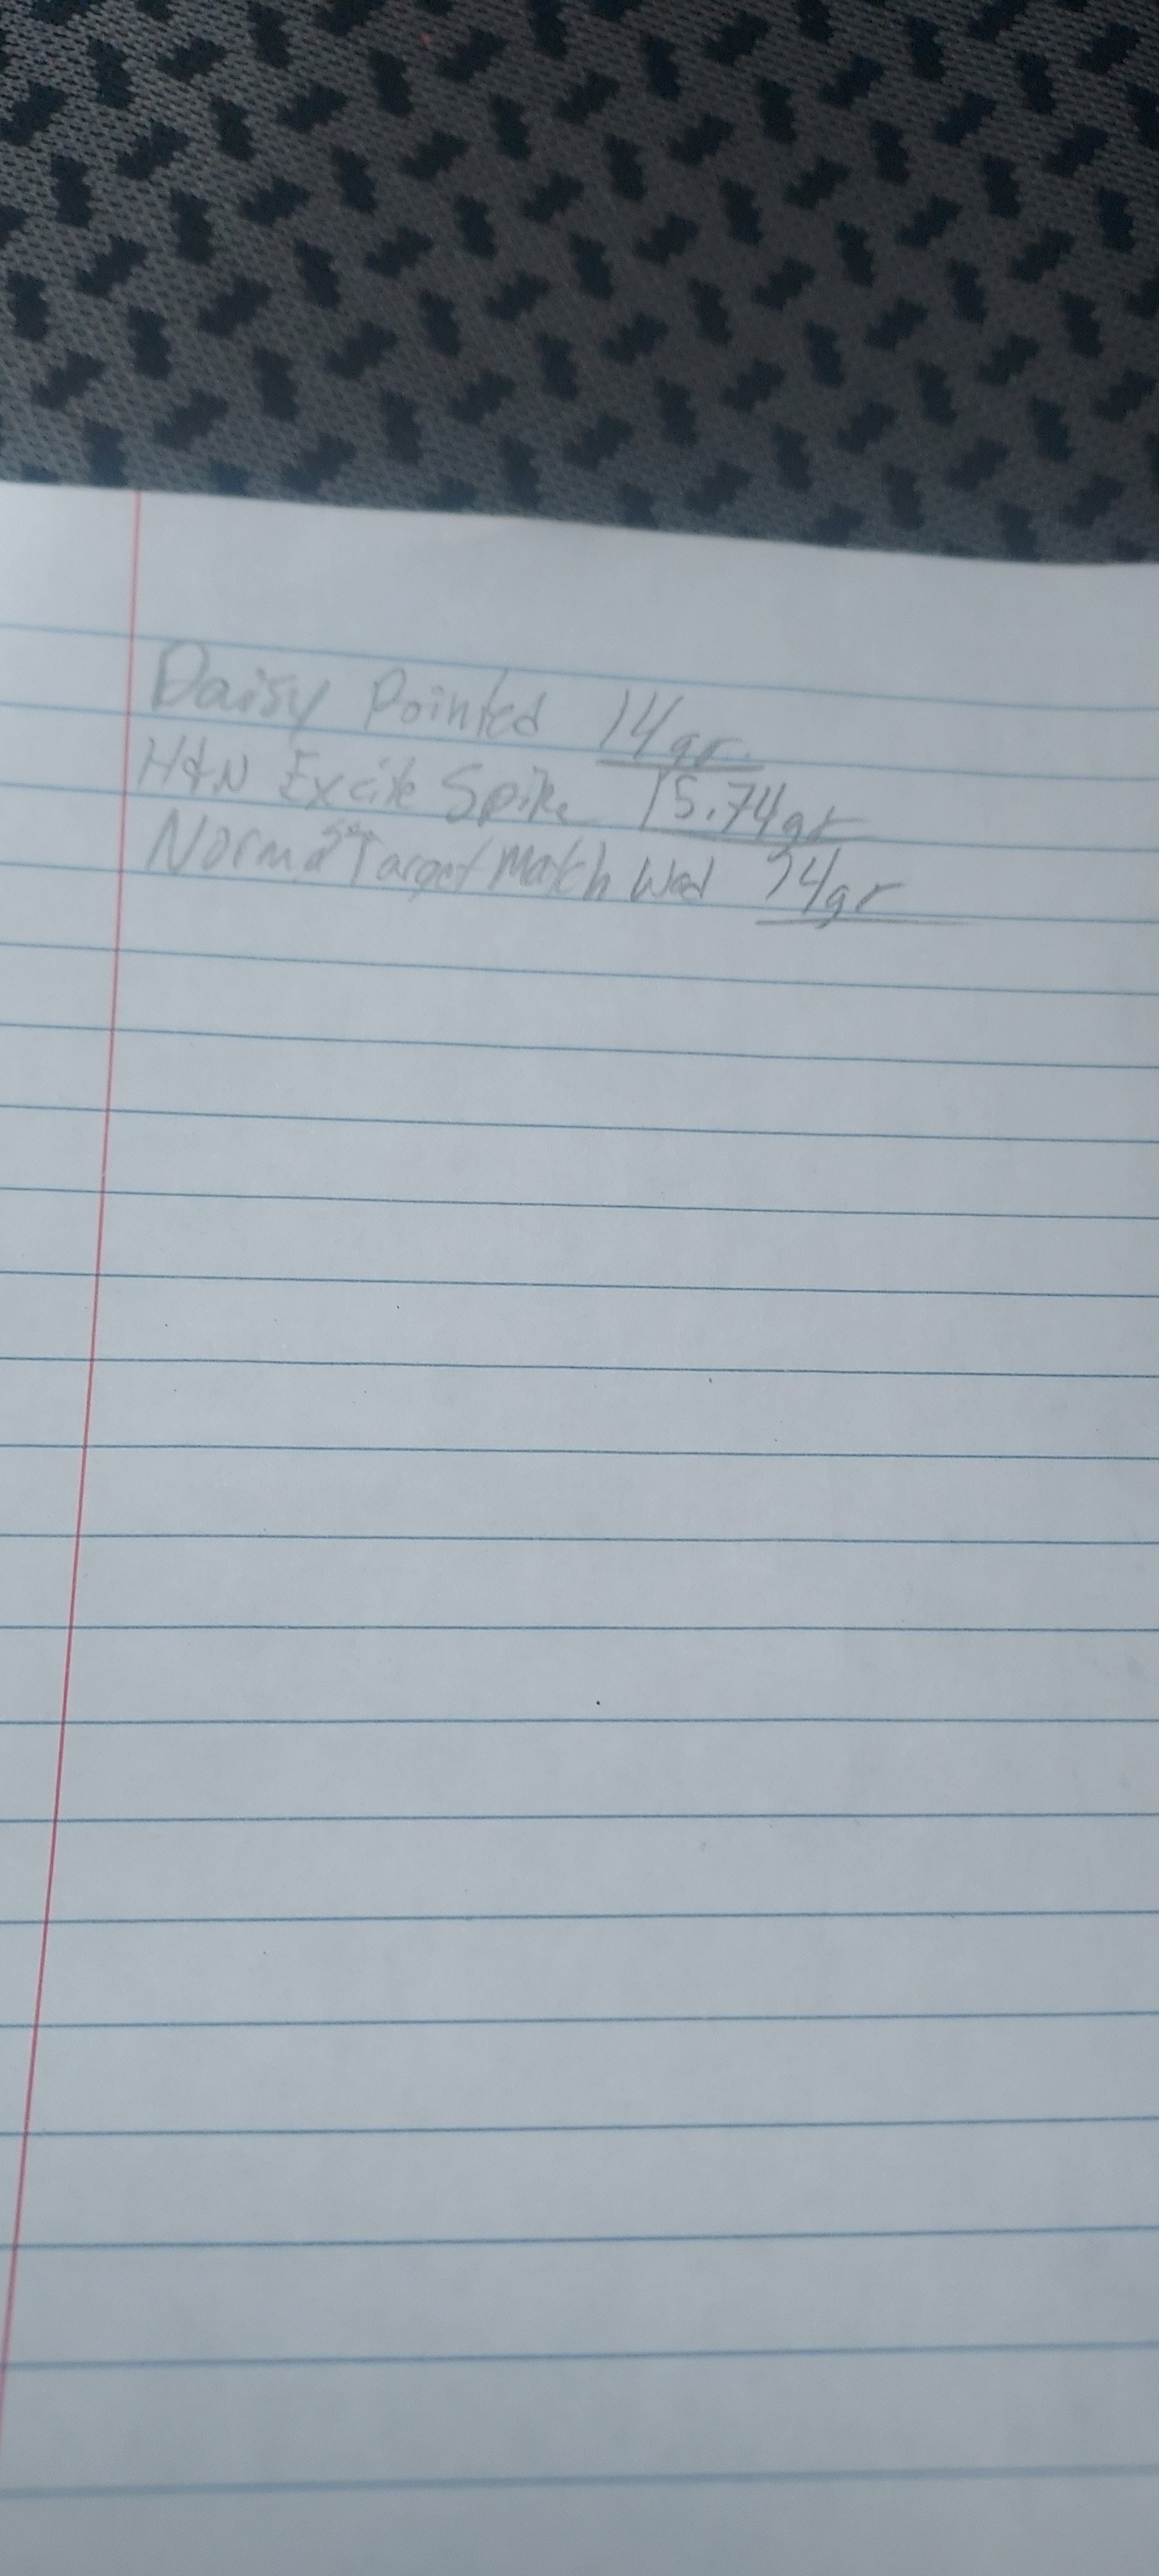 Daisy Pointed 14gr
H&N Excite Spike 15.74gr
Norma Target Match Wad 14gr